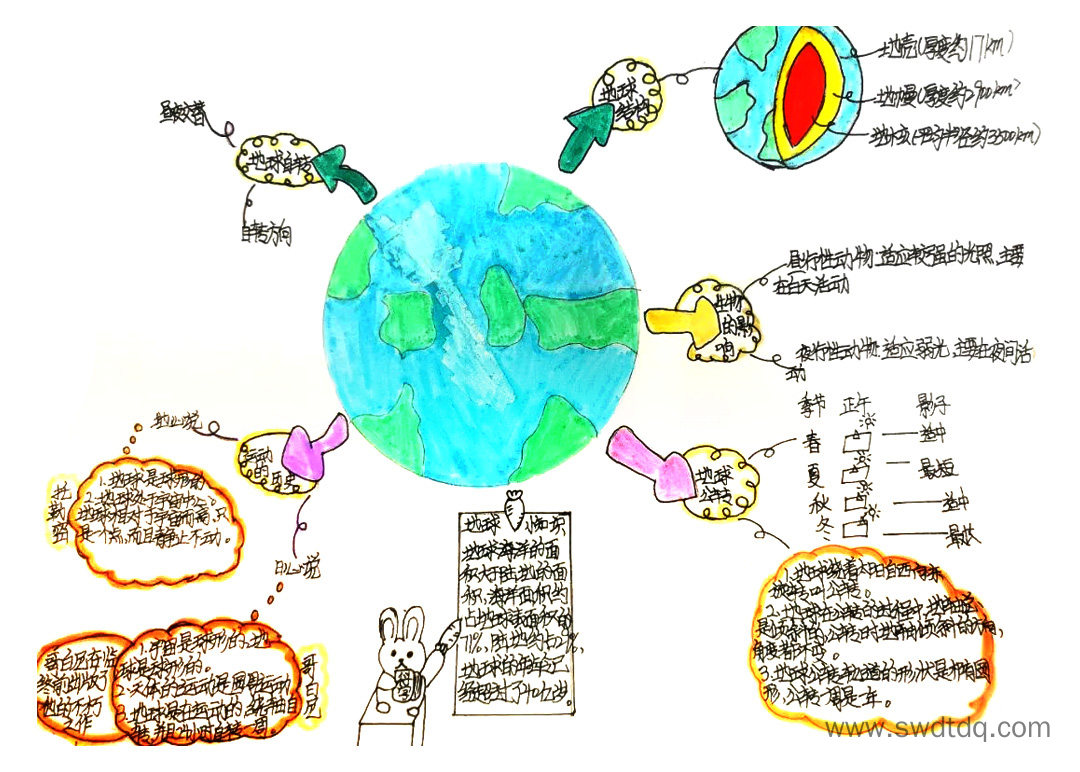 地球
结构
地壳(厚度约17km)
地幔(厚度约2900km)
地核(平均半径约3500km)
昼夜交替
地球自转
自转方向
生物
的影
响
昼行性动物:适应较强的光照,主要
在白天活动
夜行性动物:适应弱光,主要在夜间活
动
季节 正午 影子
春 适中
夏 最短
秋 适中
冬 最长
地球
公转
1.地球绕着太阳自西向东
2.地球在公转的过程中,地轴
3.地球公转轨道的形状是椭圆
形,公转一周是一年。
运动
的
历史
地心说
托
勒
密
1.地球是球形的
2.地球处于宇宙中心。
是不动,而且静止不动。
日心说
哥
白
尼
1.宇宙是球形的,地
球是球形的。
2.天体的运动是圆周运动
3.地球是在运动的,绕轴自
转,并且24小时自转一周。
哥白尼在临
终前出版了
他的不朽
之作
地球 小知识
地球海洋的面
积大于陆地的面
积,海洋面积约
占地球表面积的
71%,陆地约占29%,
地球的年龄已
经超过了40亿岁。
www.swdtdq.com